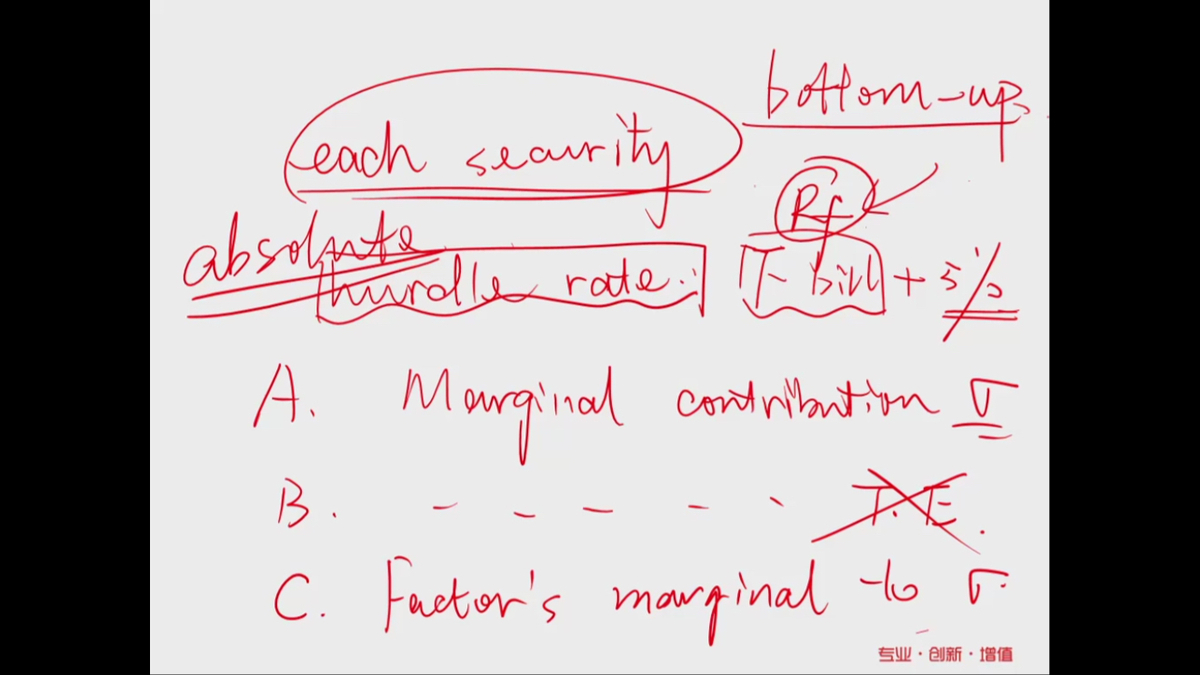 bottom-up
each security
Rf
absolute
hurdle rate. T-bill + 5%
A. Marginal contribution σ
B. - - - - - T.E.
C. Factor's marginal to σ
专业·创新·增值